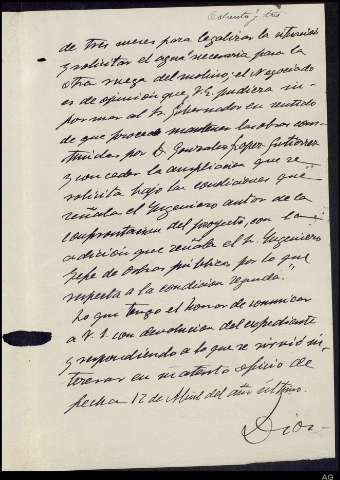 de tres meses para legalizar la situación
y solicitar el agua necesaria para la
otra rueda del molino; el Negociado
es de opinión que V.E. pudiera in-
formar al Sr. Gobernador en sentido
de que procede mantener las obras cons-
truidas por D. Gonzalo López Gutiérrez
y conceder la ampliación que se
solicita bajo las condiciones que
señala el Ingeniero autor de la
confrontación del proyecto, con la
adición que señala el Sr. Ingeniero
Jefe de Obras públicas por lo que
respecta a la condición segunda."
Lo que tengo el honor de comunicar
a V.S. con devolución del expediente
y respondiendo a lo que se sirvió in-
teresar en su atento oficio de
fecha 12 de Abril del año último.
Dios
AG